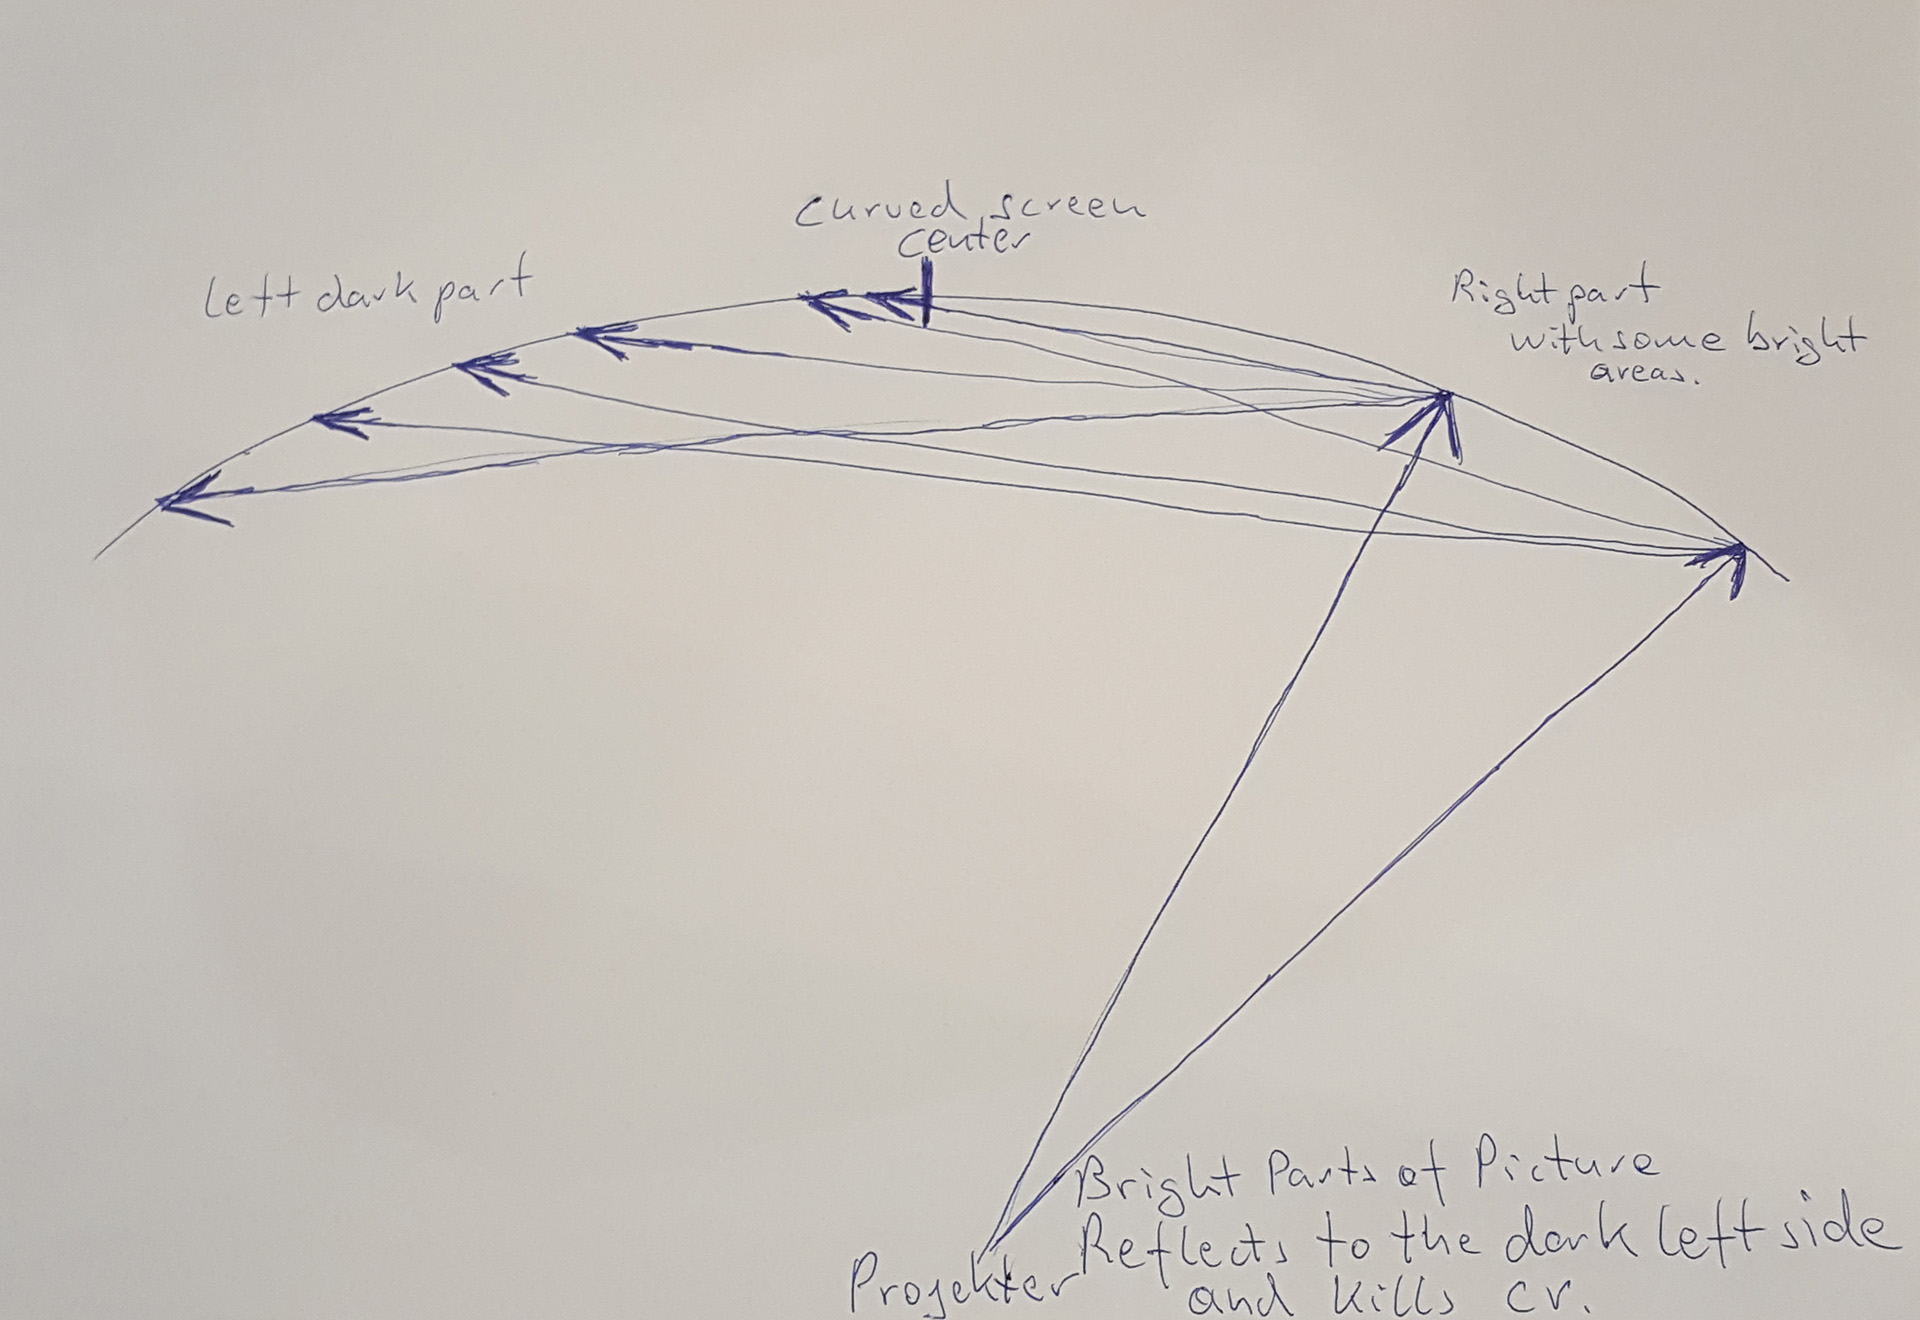 curved screen
center
left dark part
Right part
with some bright
areas.
Bright Parts of Picture
Reflects to the dark left side
Projekter
and kills cr.